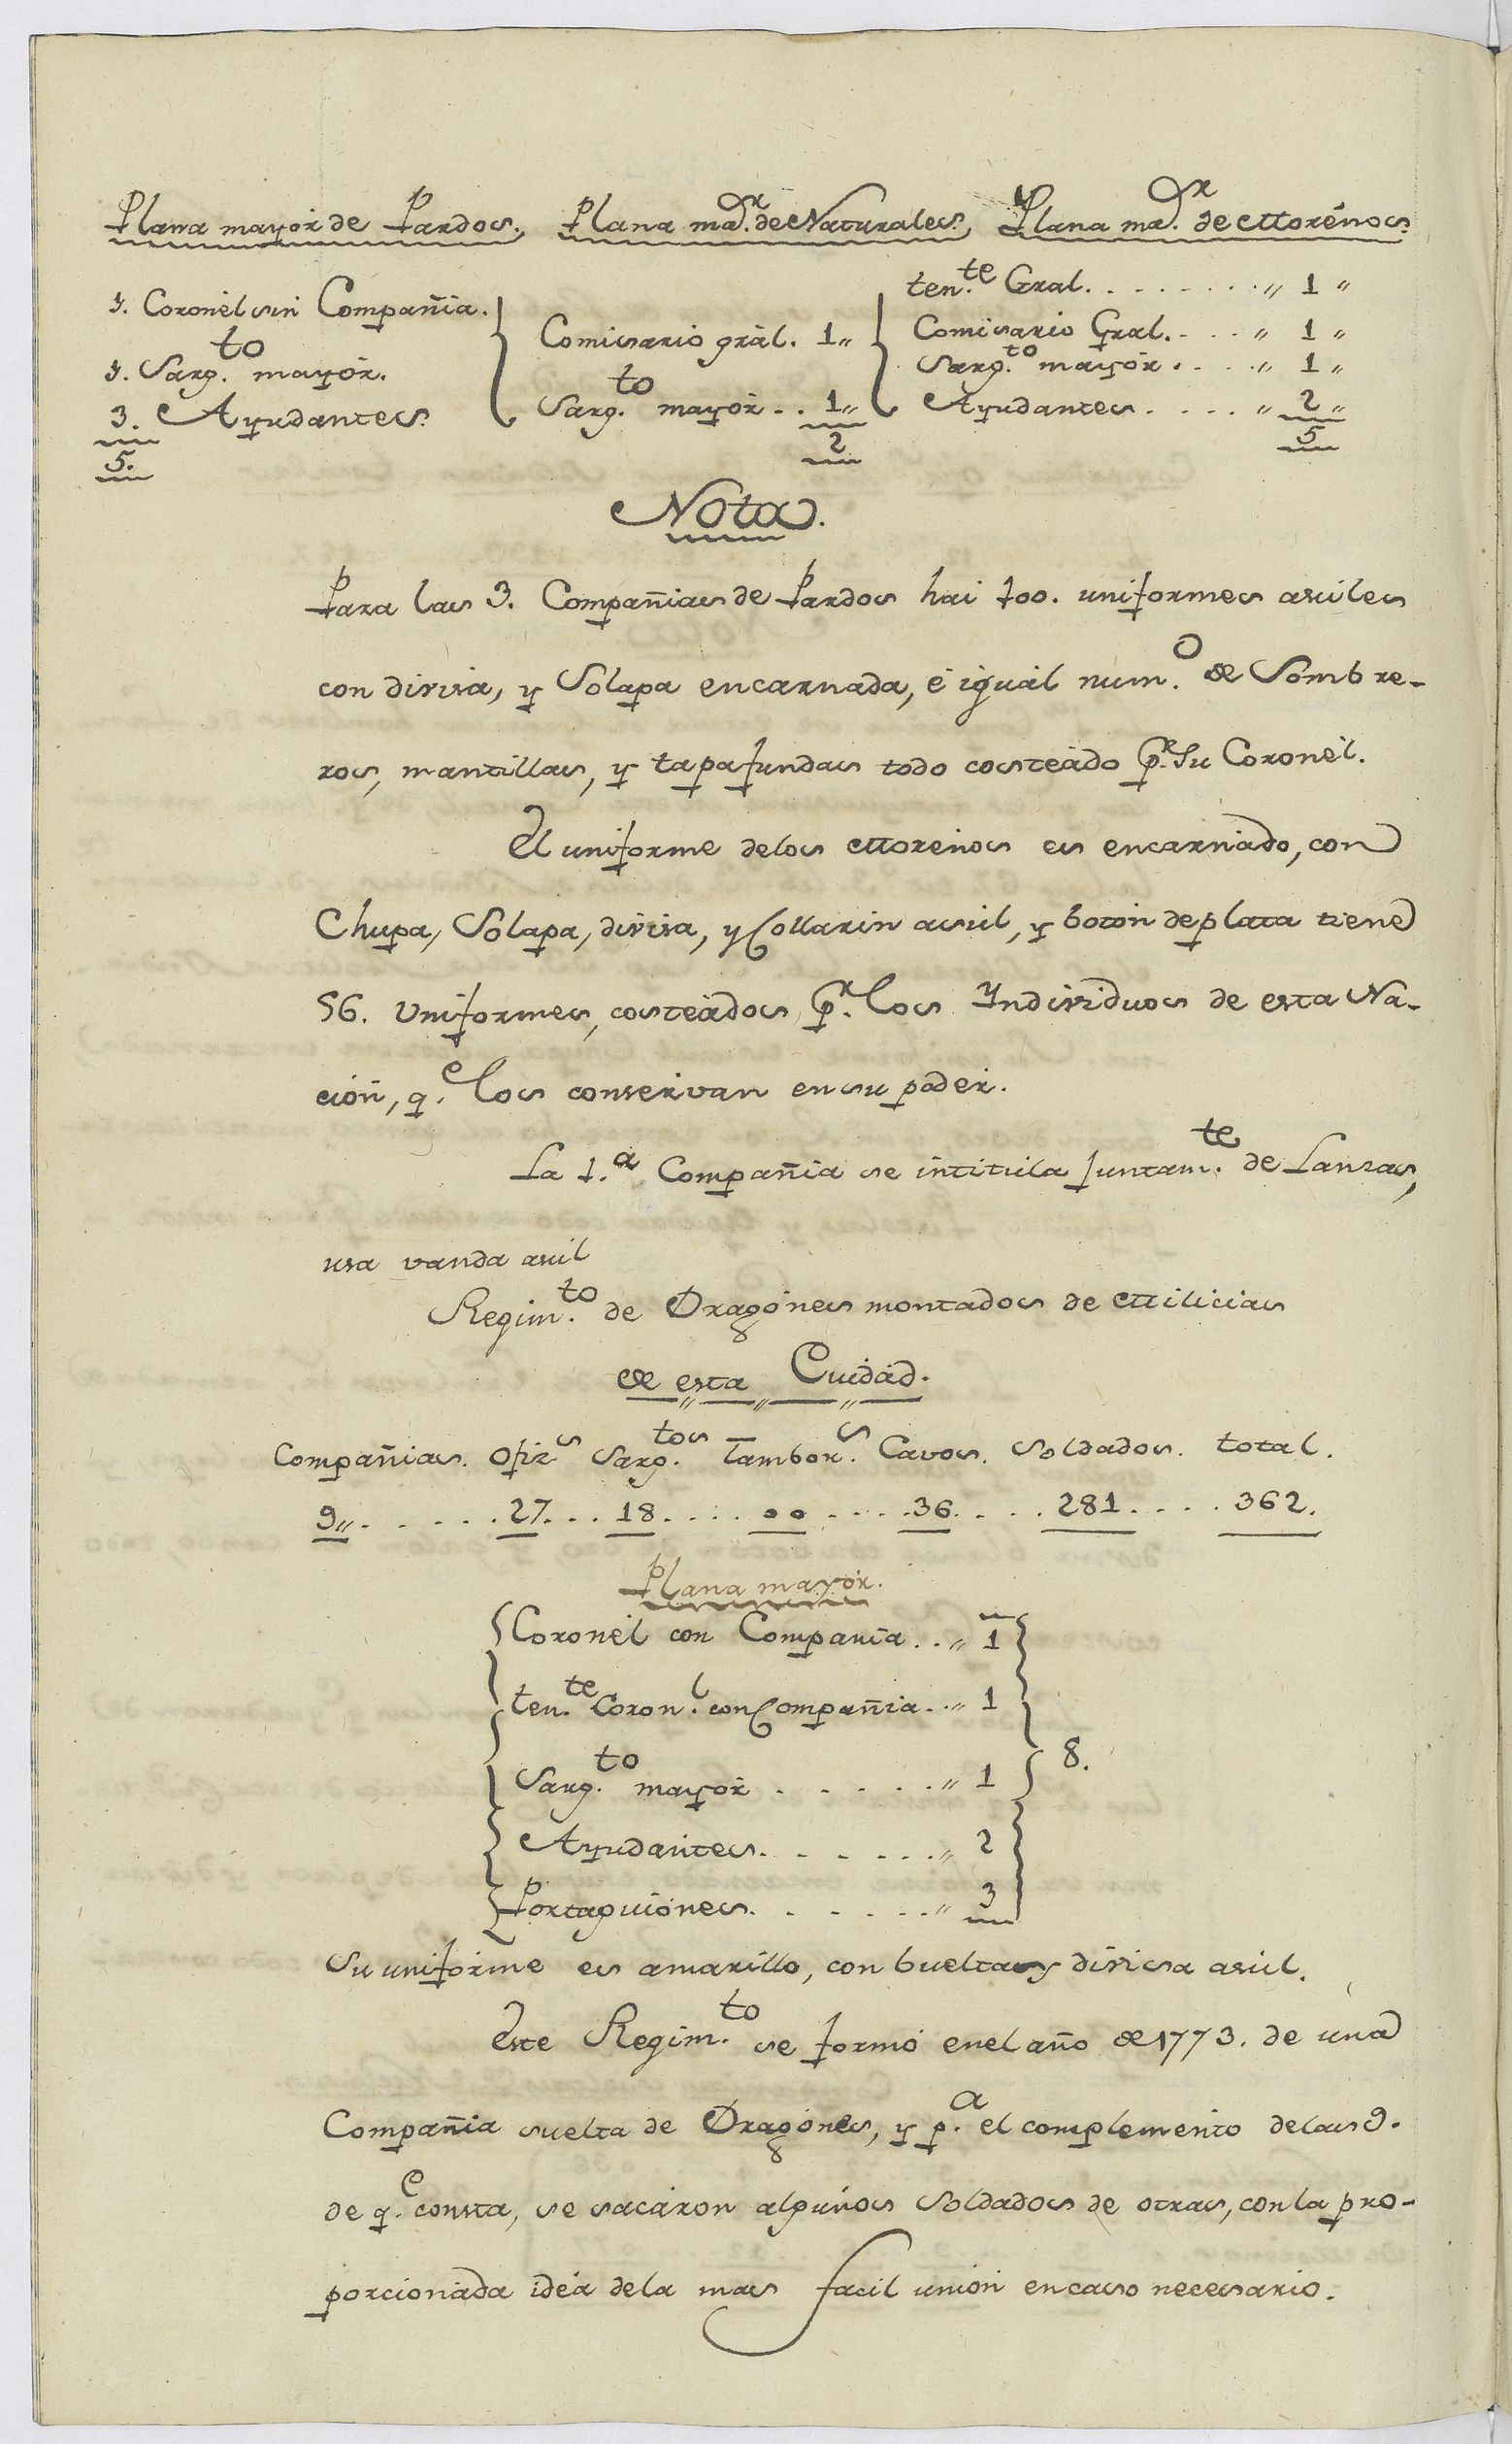 Plana mayor de Pardos. Plana ma.or de Naturales. Plana ma.or de Morenos.
1. Coronel sin Compañia.
1. Sarg.to mayor.
3. Ayudantes.
5.
Comisario gral. 1"
Sarg.to mayor.. 1"
2
ten.te Gral. . . . . . . . " 1 "
Comisario Gral. . . . " 1 "
Sarg.to mayor . . . . " 1 "
Ayudantes . . . . " 2 "
5
Nota.
Para las 3. Compañias de Pardos hai 100. uniformes asules
con divisa, y Solapa encarnada, é igual num.o de Sombre-
ros, mantillas, y tapafundas todo costeado p.r su Coronel.
El uniforme delos Morenos es encarnado, con
Chupa, Solapa, divisa, y Collarin asul, y boton de plata tiene
56. Uniformes, costeados p.r los Yndividuos de esta Na-
cion, q.e los conservan en su poder.
La 1.a Compañia se intitula Juntam.te de Lanzas,
usa vanda asul
Regim.to de Dragones montados de Milicias
de esta Cuidad.
Compañias. Ofiz.s Sarg.tos Tambor.s Cavos. Soldados. total.
9" . . . . . . 27. . . 18. . . . . oo . . . . . 36. . . . 281. . . . 362.
Plana mayor.
Coronel con Compania. . . " 1
ten.te Coron.l con Compañia. . . " 1
Sarg.to mayor . . . . . . " 1
8.
Ayudantes. . . . . . . " 2
Portaguiones. . . . . . . " 3
Su uniforme es amarillo, con bueltas y divisa asul.
Este Regim.to se formó enel año de 1773. de una
Compañia suelta de Dragones, y p.a el complemento delas 9.
de q.e consta, se sacaron algunos Soldados de otras, con la pro-
porcionada idéa dela mas facil union encaso necesario.